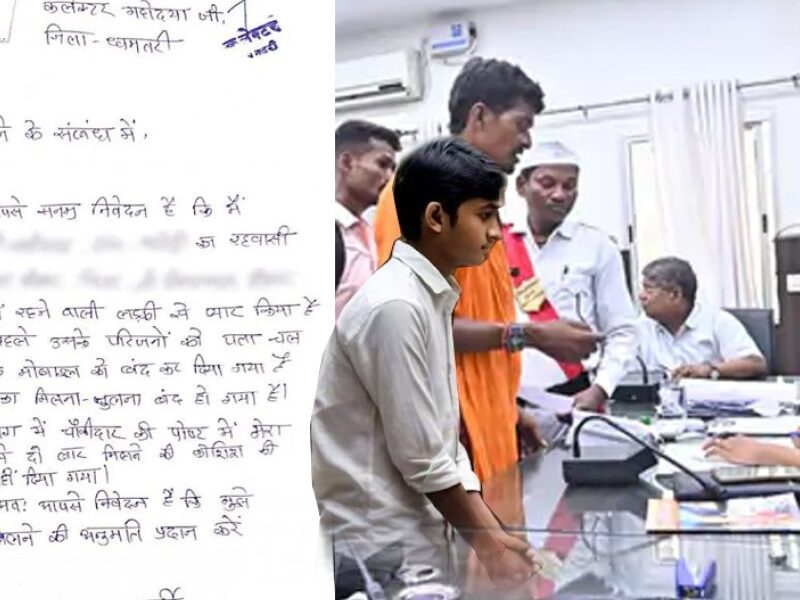 कलेक्टर महोदया जी,
जिला - धमतरी
के संबंध में,
पसे सनम्र निवेदन है कि मैं
का रहवासी
रहने वाली लड़की से प्यार किया है
हले उसके परिजनों को पता चल
मोबाइल को बंद कर दिया गया है
का मिलना-जुलना बंद हो गया है।
ग में चौकीदार की पोस्ट में मेरा
दो बार मिलने की कोशिश की
हीं दिया गया।
तः आपसे निवेदन है कि मुझे
लने की अनुमति प्रदान करें